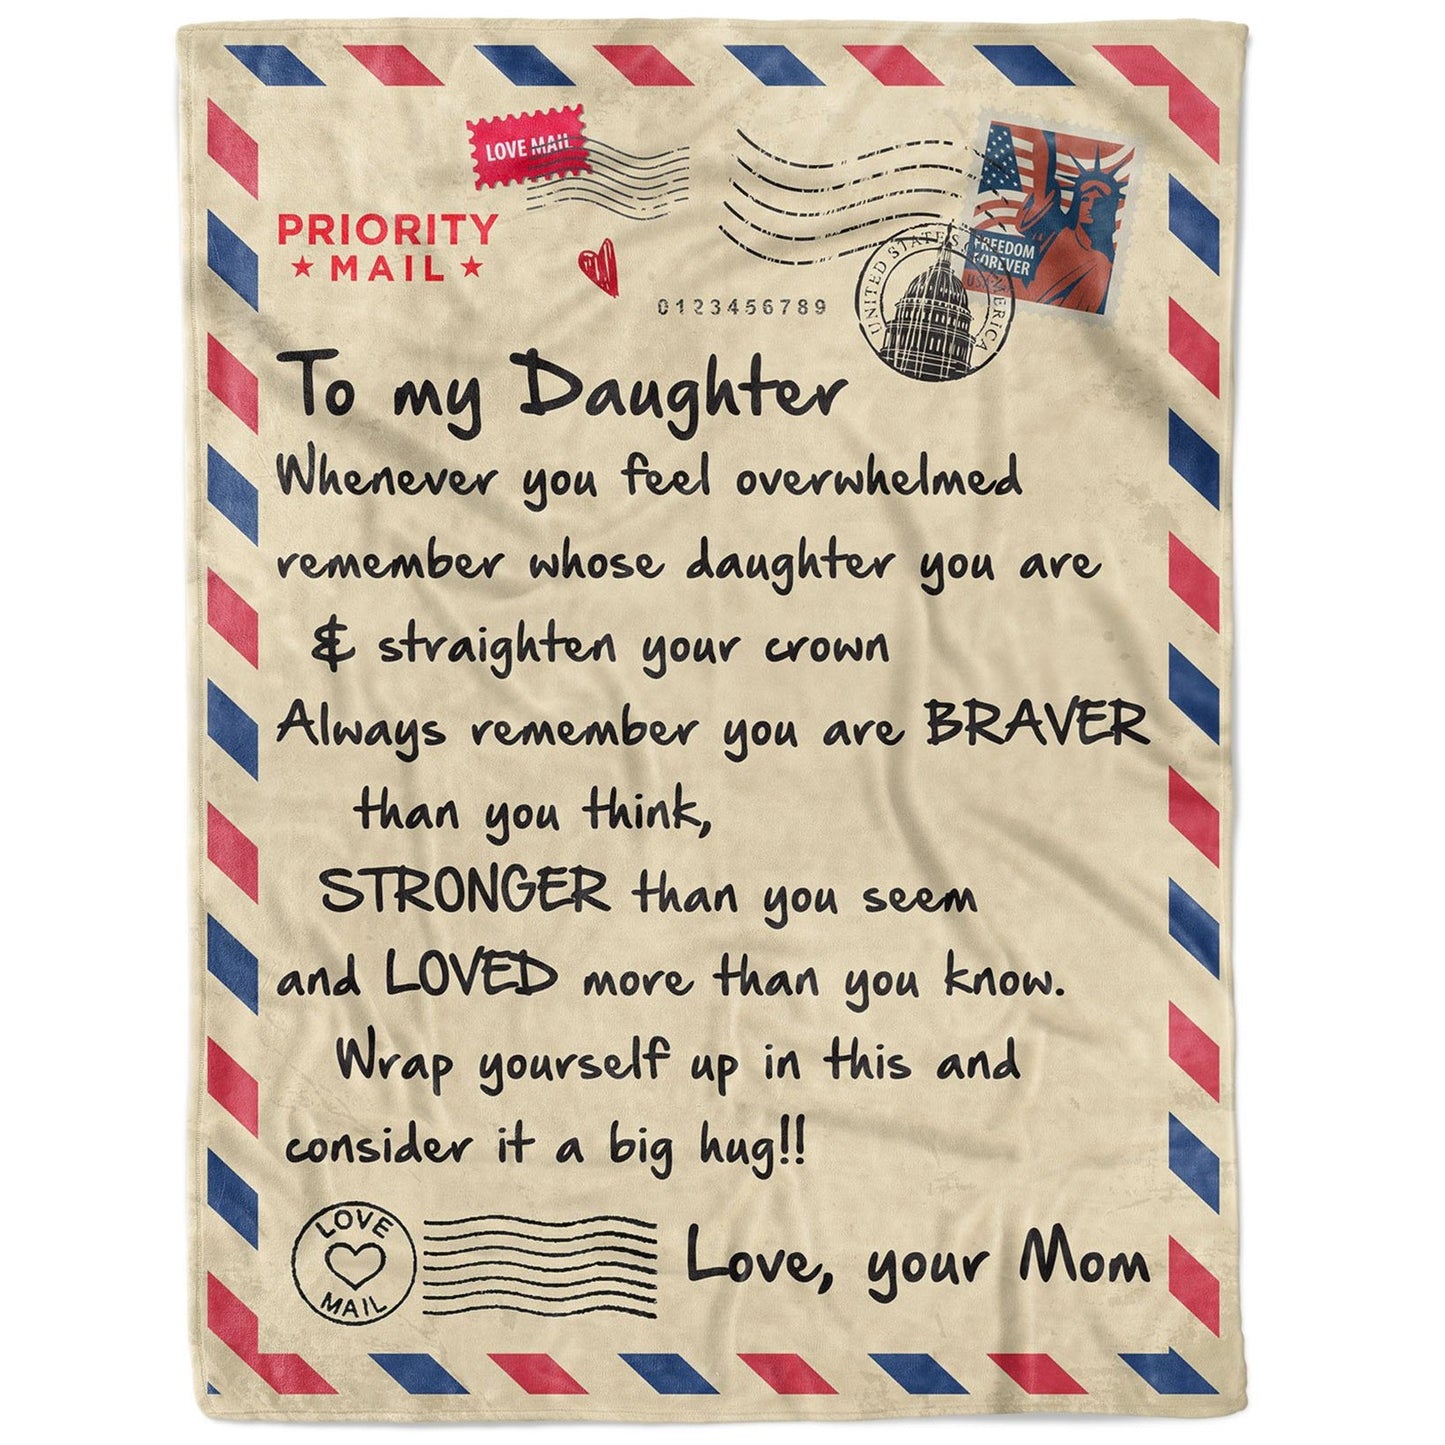 LOVE MAIL
PRIORITY
★ MAIL ★
0123456789
UNITED STATES AMERICA
FREEDOM
FOREVER
USA
To my Daughter
Whenever you feel overwhelmed
remember whose daughter you are
& straighten your crown
Always remember you are BRAVER
than you think,
STRONGER than you seem
and LOVED more than you know.
Wrap yourself up in this and
consider it a big hug!!
LOVE
MAIL
Love, your Mom